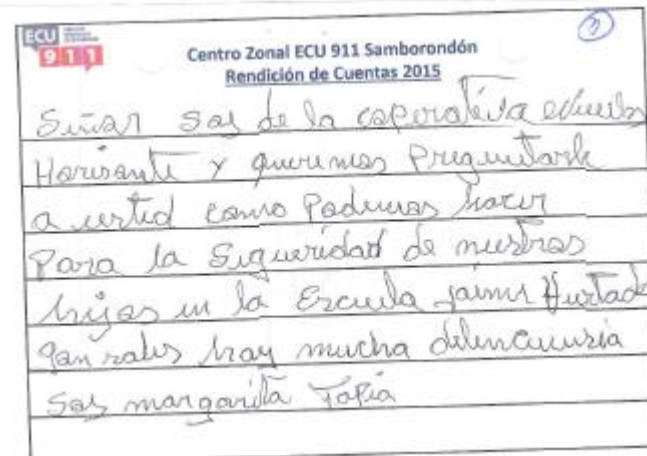 ECU
911
3
Centro Zonal ECU 911 Samborondón
Rendición de Cuentas 2015
Señar Soy de la coperativa
Horisante y queremos Preguntarle
a usted como Podemos hacer
Para la Sigueridad de nuestros
hijos en la Escuela jaime Hurtado
hay mucha delencuensia
Soy margarita Tapia